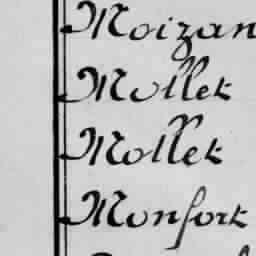 Moizan
Mollet
Mollet
Monfort